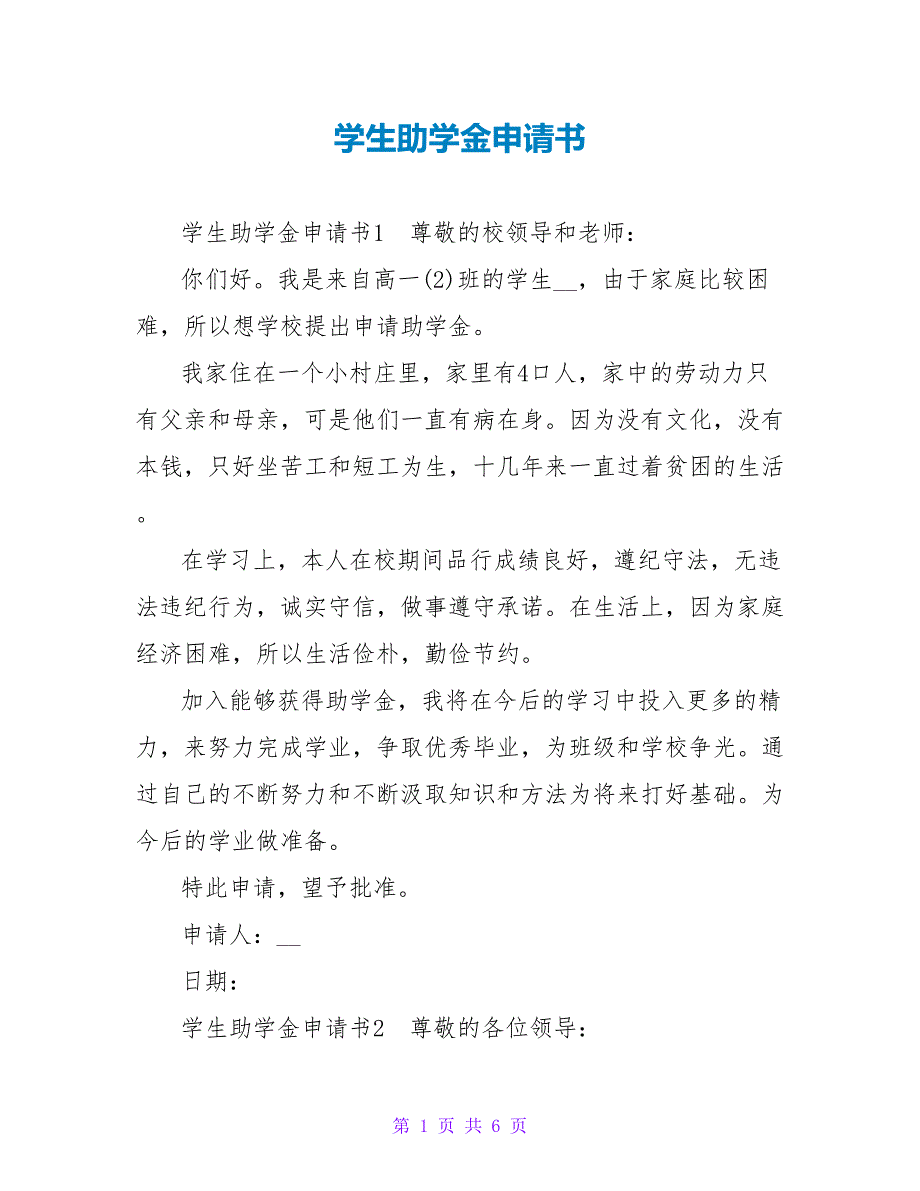 学生助学金申请书
学生助学金申请书1　尊敬的校领导和老师：
你们好。我是来自高一(2)班的学生__，由于家庭比较困
难，所以想学校提出申请助学金。
我家住在一个小村庄里，家里有4口人，家中的劳动力只
有父亲和母亲，可是他们一直有病在身。因为没有文化，没有
本钱，只好坐苦工和短工为生，十几年来一直过着贫困的生活
。
在学习上，本人在校期间品行成绩良好，遵纪守法，无违
法违纪行为，诚实守信，做事遵守承诺。在生活上，因为家庭
经济困难，所以生活俭朴，勤俭节约。
加入能够获得助学金，我将在今后的学习中投入更多的精
力，来努力完成学业，争取优秀毕业，为班级和学校争光。通
过自己的不断努力和不断汲取知识和方法为将来打好基础。为
今后的学业做准备。
特此申请，望予批准。
申请人：__
日期：
学生助学金申请书2　尊敬的各位领导：
第 1 页 共 6 页